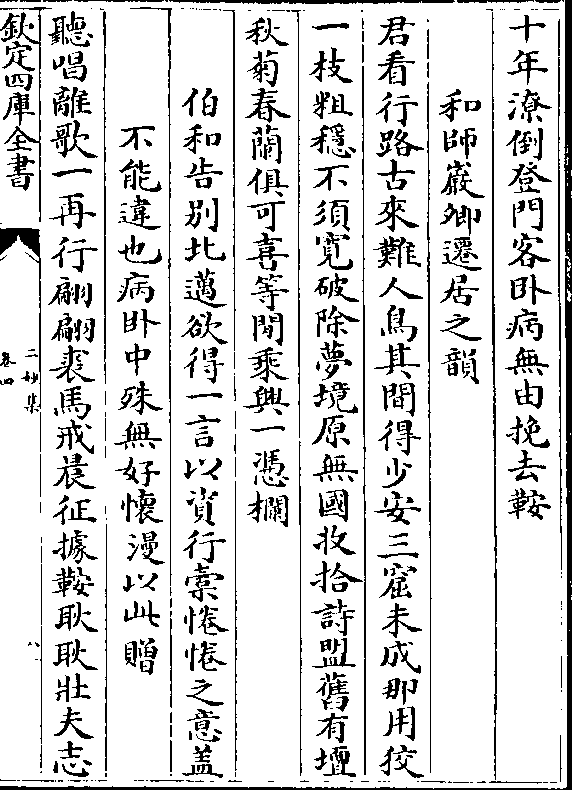 十年潦倒登門客卧病無由挽去鞍
和師巖卿遷居之韻
君看行路古來難人鳥其間得少安三窟未成那用狡
一枝粗穩不須寛破除夢境原無國收拾詩盟舊有壇
秋菊春蘭俱可喜等閒乘興一憑欄
伯和告别北邁欲得一言以資行槖惓惓之意盖
不能違也病卧中殊無好懷漫以此贈
聽唱離歌一再行翩翩裘馬戒晨征據鞍耿耿壯夫志
欽定四庫全書
二妙集
卷四
八